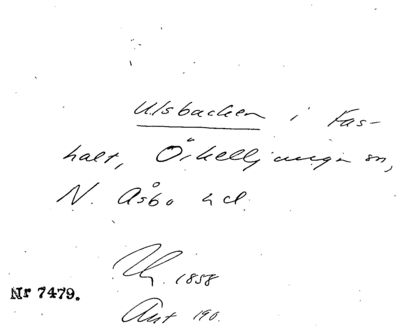 Ulsbacken i Fas-
halt, Örkelljunga sn,
N. Åsbo hd
1858
Nr 7479.
Ant 190.